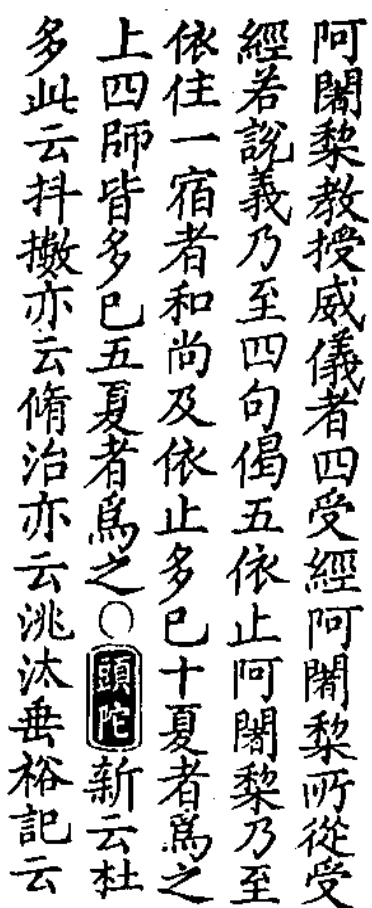 阿闍梨教授威儀者四受經阿闍梨所從受
經若說義乃至四句偈五依止阿闍梨乃至
依住一宿者和尚及依止多己十夏者爲之
上四師皆多己五夏者爲之○頭陀新云杜
多此云抖擻亦云脩治亦云洮汰垂裕記云